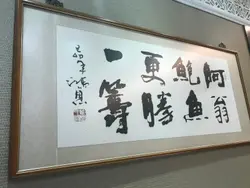 阿翁
鮑魚
更勝
一籌